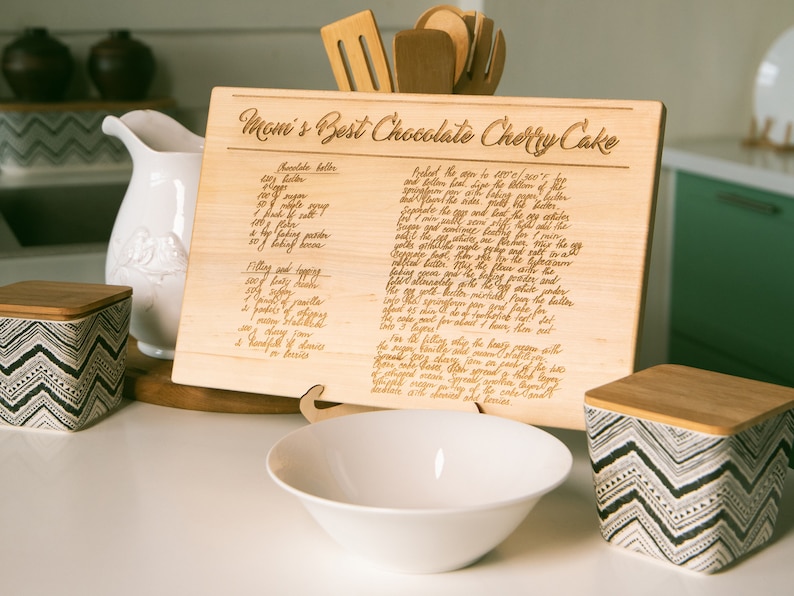 Mom's Best Chocolate Cherry Cake
Chocolate batter
120g butter
4 eggs
100 g sugar
50 g maple syrup
1 pinch of salt
100 g flour
2 tsp baking powder
50 g baking cocoa
Filling and topping
500 g heavy cream
50g sugar
1 pinch of vanilla
2 packets of whipping
cream stabilizer
200 g cherry jam
2 handfuls of cherries
or berries
Preheat the oven to 180°C/360°F top
and bottom heat. Line the bottom of the
springform pan with baking paper, butter
and flour the sides. Melt the butter.
Separate the eggs and beat the egg whites
for 1 min until semi stiff, then add the
sugar and continue beating for 1 min
until the egg whites are firmer. Mix the egg
yolks with the maple syrup and salt in a
separate bowl, then stir in the lukewarm
melted butter. Mix the flour with the
baking cocoa and the baking powder and
fold alternately with the egg white under
the egg yolk butter mixture. Pour the batter
into the springform pan and bake for
about 45 min & do a toothpick test. Let
the cake cool for about 1 hour, then cut
into 3 layers.
For the filling whip the heavy cream with
the sugar, vanilla and cream stabilizer.
Spread 100g cherry jam on each of the two
lower cake bases, then spread a thick layer
of whipped cream. Spread another layer of
whipped cream on top of the cake and
decorate with cherries and berries.